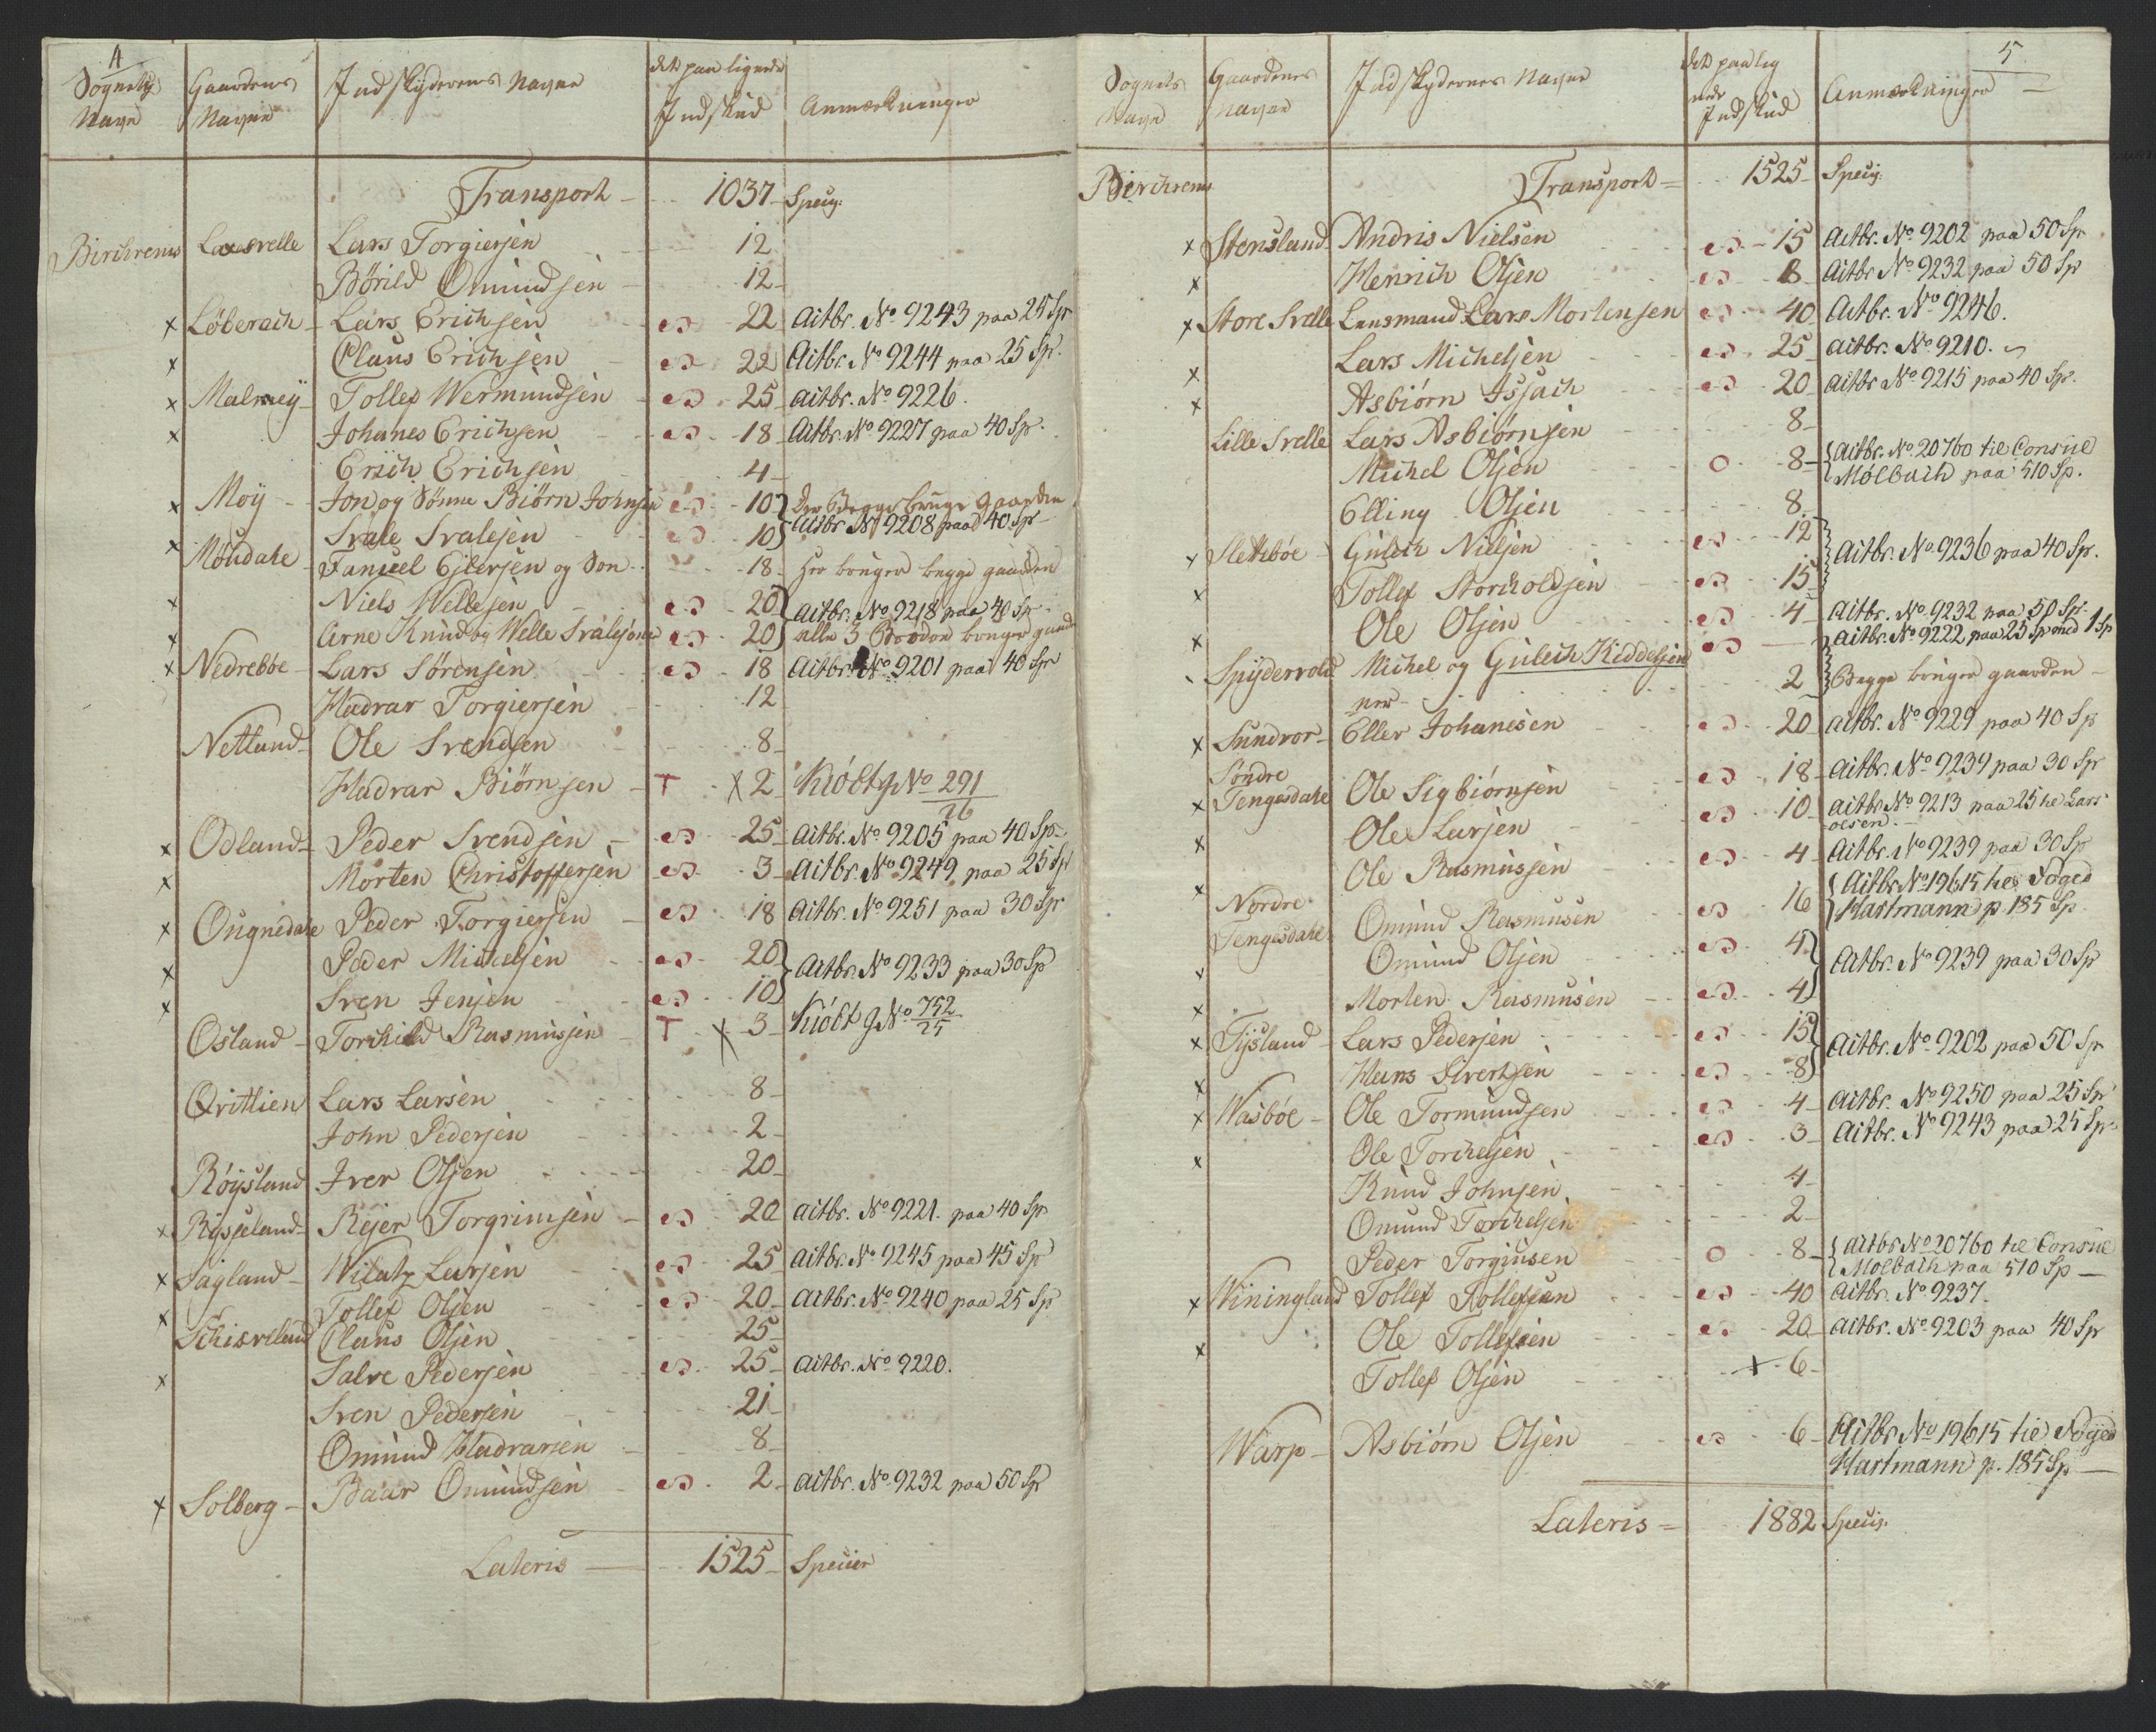 4
Sognetz Navn | Gaardens Navne | Indskydernes Navne | det paa lignede Indskud | Anmærkninger
Transport - 1037 - Specis:
Birchrems Laxsvelle Lars Torgiersen 12
Børild Omundsen - 12 -
x Løberach - Lars Erichsen 22 Actbr. No 9243 paa 25 Sp
x Claus Erichsen - 22 Actbr. No 9244 paa 25 Sp.
x Malmeÿ - Tollef Wermundsen 25 Actbr. No 9226.
x Johanes Erichsen - 18 - Actbr. No 9227 paa 40 Sp.
Erich Erichsen 4 -
x Moÿ - Jon og Sønne Biørn Johnsen - 10 Der Begge bruge Gaarden
x Svale Svalesen - 10 Actbr No 9208 paa 40 Sp -
Møndale - Fanuel Ejlersen og Søn - 18 - her bruger begge gaarden
x Niels Wellesen - 20 Actbr. No 9218 paa 40 Sp -
x Arne Knud og Welle Svalesønner - 20 alle 3 Brødre bruger gaarden
x Nedrebøe - Lars Sørensen - 18 Actbr. No 9201 paa 40 Sp
Hadvar Torgiersen 12
Netland - Ole Svendsen 8 -
Hadvar Biørnsen - T x 2 Kiöbt J No 291/26
x Odland - Peder Svendsen - 25 - Actbr. No 9205 paa 40 Sp -
x Morten Christoffersen 3 - Actbr. No 9249 paa 25 Sp
x Ougnedale Peder Torgiersen - 18 Actbr. No 9251 paa 30 Sp
x Peder Michelsen - 20
x Sven Jensen - 10 Actbr. No 9233 paa 30 Sp
Osland - Torkild Rasmussen T x 3 - Kiöbt J No 752/25
Qvitlien Lars Larsen 8 -
John Pedersen 2 -
Röÿsland Iver Olsen 20 -
x Risseland - Rejer Torgrimsen - 20 Actbr. No 9221. paa 40 Sp
x Sagland - Wilatz Larsen - 25 Actbr. No 9245 paa 45 Sp
x Tollef Olsen 20 - Actbr. No 9240 paa 25 Sp
Schisveland Claus Olsen 25 -
x Salve Pedersen 25 - Actbr. No 9220.
Sven Pedersen 21 -
Omund Hadvarsen 8 -
x Solberg - Baar Omundsen - 2 - Actbr. No 9232 paa 50 Sp
Lateris - 1525 - Specier
5
Sognets Navn | Gaardenes Navne | Indskydernes Navne | det paalignede Indskud | Anmærkninger
Birchrems Transport - 1525 - Specis:
x Stensland Andris Nielsen - 15 Actbr. No 9202 paa 50 Sp
x Henrich Olsen 8 Actbr No 9232 paa 50 Sp
x Store Svelle Lensmand Lars Mortensen - 40 Actbr. No 9246.
x Lars Michelsen 25 Actbr. No 9210.
x Asbiørn Issach 20 Actbr No 9215 paa 40 Sp.
Lille Svelle Lars Asbiørnsen 8 -
Michel Olsen O 8 - Actbr. No 20760 til Consul Mølbach paa 510 Sp.
Elling Olsen 8
x Slettebøe - Guleik Nielsen 12
x Tollef Storkoldsen 15 Actbr. No 9236 paa 40 Sp.
x Ole Olsen 4 - Actbr. No 9232 paa 50 Sp.
Spÿdervold Michel og Guleich Kiddelsønner - 2 Actbr. No 9222 paa 25 Sp med 1 Sp
Begge bruger gaarden -
x Sundvor - Eller Johanesen 20 Actbr. No 9229 paa 40 Sp
x Söndre Tengesdale Ole Sigbiørnsen 18 - Actbr. No 9239 paa 30 Sp
x Ole Larsen 10 Actbr No 9213 paa 25 til Lars Olsen -
x Ole Rasmussen 4 - Actbr. No 9239 paa 30 Sp
Nordre Tengesdahl Omund Rasmusen 16 Actbr No 19615 til Foged Hartmann p. 185 Sp
x Omund Olsen 4
x Morten Rasmusen - 4 Actbr. No 9239 paa 30 Sp
x Tÿsland - Lars Pedersen 15
x Hans Sivertsen 8 Actbr. No 9202 paa 50 Sp
x Wasbøe - Ole Tormundsen 4 - Actbr. No 9250 paa 25 Sp
x Ole Torkelsen 3 - Actbr. No 9243 paa 25 Sp
Knud Johnsen 4 -
Omund Torkelsen 2 -
Peder Torgiusen O 8 - Actbr No 20760 til Consul Mølbach paa 510 Sp -
x Winingland Tollef Tollefsen 40 Actbr. No 9237.
x Ole Tollefsen 20 - Actbr. No 9203 paa 40 Sp
Tollef Olsen x 6 -
Warp - Asbiørn Olsen 6 - Actbr No 19615 til Foged Hartmann p. 185 Sp -
Lateris - 1882 Specis: